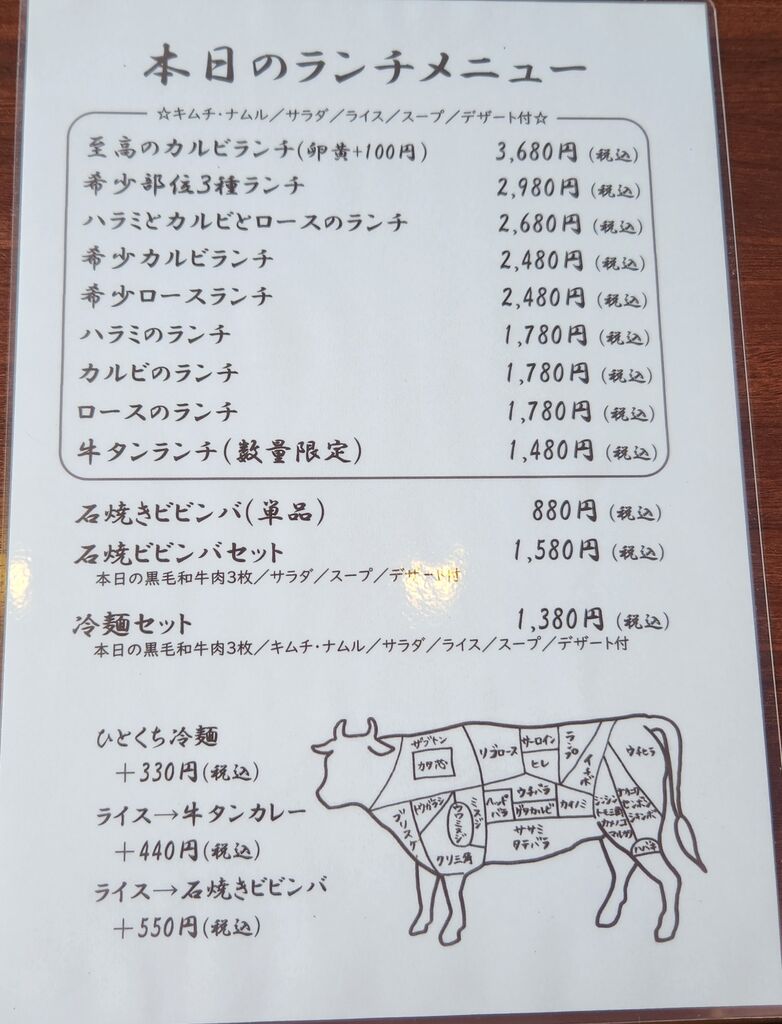 本日のランチメニュー
☆キムチ・ナムル／サラダ／ライス／スープ／デザート付☆
至高のカルビランチ(卵黄+100円) 3,680円(税込)
希少部位3種ランチ 2,980円(税込)
ハラミとカルビとロースのランチ 2,680円(税込)
希少カルビランチ 2,480円(税込)
希少ロースランチ 2,480円(税込)
ハラミのランチ 1,780円(税込)
カルビのランチ 1,780円(税込)
ロースのランチ 1,780円(税込)
牛タンランチ(数量限定) 1,480円(税込)
石焼きビビンバ(単品) 880円(税込)
石焼ビビンバセット 1,580円(税込)
本日の黒毛和牛肉3枚／サラダ／スープ／デザート付
冷麺セット 1,380円(税込)
本日の黒毛和牛肉3枚／キムチ・ナムル／サラダ／ライス／スープ／デザート付
ひとくち冷麺
＋330円(税込)
ライス→牛タンカレー
＋440円(税込)
ライス→石焼きビビンバ
＋550円(税込)
ザブトン
カタ芯
リブロース
サーロイン
ヒレ
ランプ
イチボ
ウチヒラ
ブリスケ
トウガラシ
ウワミスジ
ミスジ
クリ三角
ヘッドバラ
ウチバラ
ゲタカルビ
カイノミ
ササミ
タテバラ
シンシン
トモ三角
カメノコ
マルカワ
ナカニク
センボン
シキンボ
ハバキ